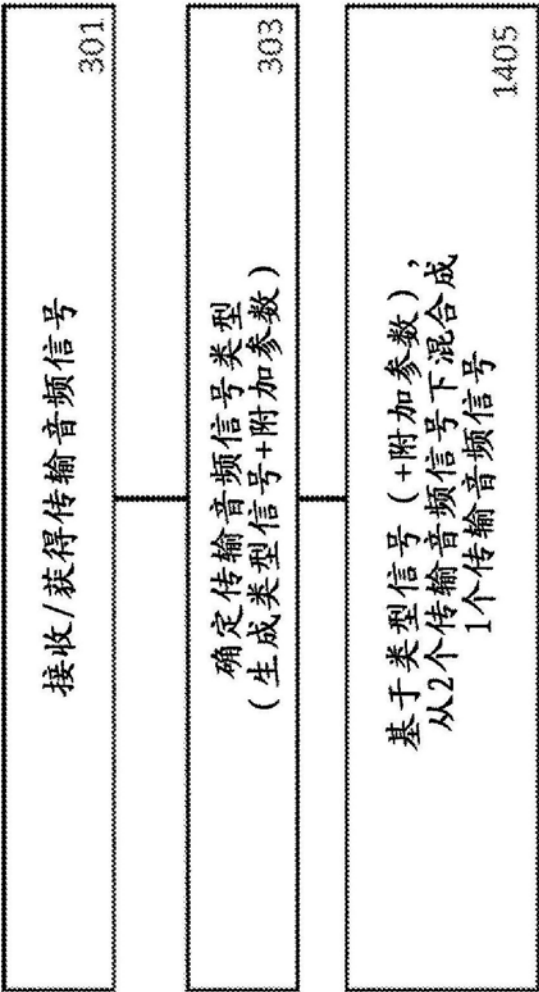 接收/获得传输音频信号
301
确定传输音频信号类型
(生成类型信号+附加参数)
303
基于类型信号（+附加参数），
从2个传输音频信号下混合成
1个传输音频信号
1405